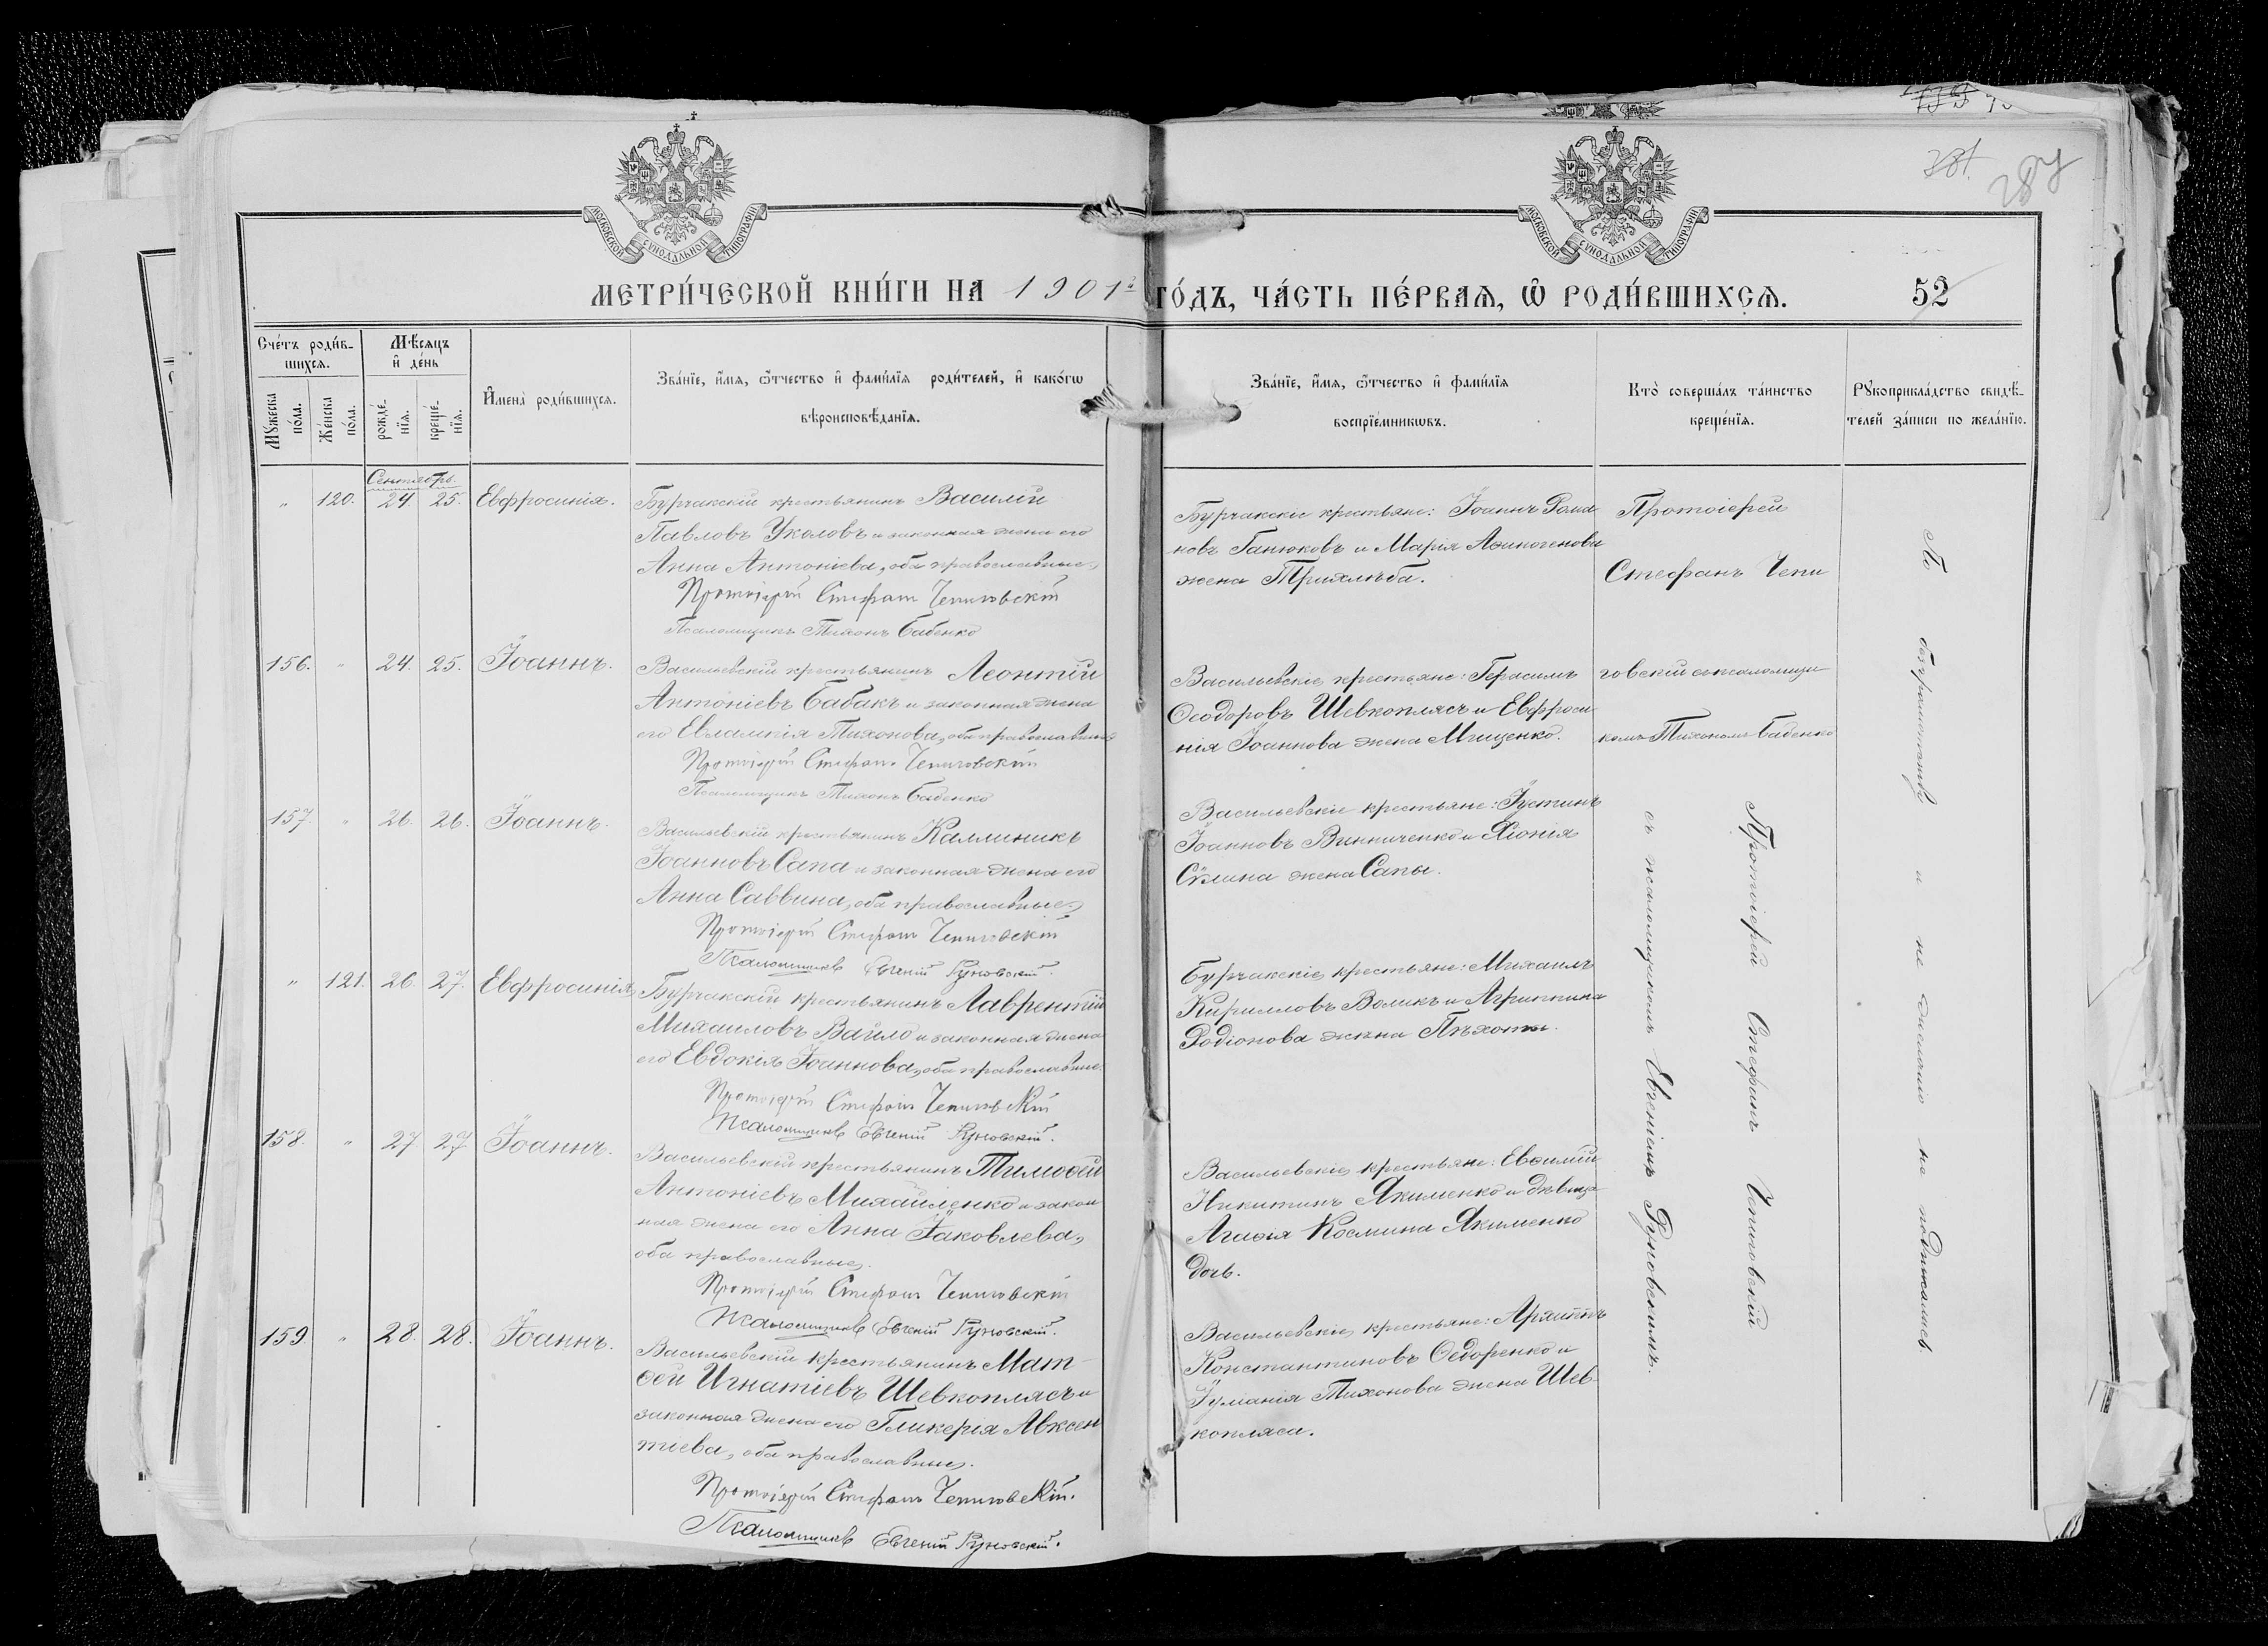 МОСКОВСКОЙ СѴНОДАЛЬНОЙ ТИПОГРАФІИ
МОСКОВСКОЙ СѴНОДАЛЬНОЙ ТИПОГРАФІИ
287
МЕТРИ́ЧЕСКОЙ КНИ́ГИ НА 1901 ГО́ДЪ, ЧА́СТЬ ПЕ́РВАѦ, Ѡ РОДИ́ВШИХСѦ.
52
Сче́тъ роди́в-
шихсѧ.
Мѣ́сѧцъ
и҆ де́нь
Мꙋ́жеска
по́ла.
Же́нска
по́ла.
рожде́-
нїѧ.
креще́-
нїѧ.
И҆мена̀ роди́вшихсѧ.
Зва́нїе, и҆́мѧ, ѻ҆́тчество и҆ фами́лїѧ роди́телей, и҆ како́гѡ
вѣроисповѣ́данїѧ.
Зва́нїе, и҆́мѧ, ѻ҆́тчество и҆ фами́лїѧ
воспрїе́мникѡвъ.
Кто̀ соверша́лъ та́инство
креще́нїѧ.
Рꙋкоприкла́дство свидѣ́-
телей за́писи по жела́нїю.
Сентябрь
" 120. 24. 25. Евфросинія.
Бурчакскій крестьянинъ Василій
Павловъ Уколовъ и законная жена его
Анна Антоніева, оба православные.
Протоіерей Стефанъ Чепиговскій
Псаломщикъ Тихонъ Бабенко
Бурчакскіе крестьяне: Іоаннъ Рома
новъ Ганюковъ и Марія Аѳиногенова
жена Трихлѣба.
Протоіерей
Стефанъ Чепи
156. " 24. 25. Іоаннъ.
Васильевскій крестьянинъ Леонтій
Антоніевъ Бабакъ и законная жена
его Евлампія Тихонова, оба православные
Протоіерей Стефанъ Чепиговскій
Псаломщикъ Тихонъ Бабенко
Васильевскіе крестьяне: Герасимъ
Ѳеодоровъ Шевкоплясъ и Евфроси
нія Іоаннова жена Мищенко.
говскій съ псаломщи
комъ Тихономъ Бабенко
157. " 26. 26. Іоаннъ.
Васильевскій крестьянинъ Каллиникъ
Іоанновъ Сапа и законная жена его
Анна Саввина, оба православные.
Протоіерей Стефанъ Чепиговскій
Псаломщикъ Евгеній Руновскій.
Васильевскіе крестьяне: Іустинъ
Іоанновъ Винниченко и Хіонія
Сѵлина жена Сапы.
" 121. 26. 27. Евфросинія
Бурчакскій крестьянинъ Лаврентій
Михаиловъ Вайло и законная жена
его Евдокія Іоаннова, оба православные.
Протоіерей Стефанъ Чепиговскій
Псаломщикъ Евгеній Руновскій.
Бурчакскіе крестьяне: Михаилъ
Кирилловъ Воликъ и Агриппина
Родіонова жена Пѣхоты.
158. " 27 27 Іоаннъ.
Васильевскій крестьянинъ Тимоѳей
Антоніевъ Михайленко и закон
ная жена его Анна Іаковлева,
оба православные.
Протоіерей Стефанъ Чепиговскій
Псаломщикъ Евгеній Руновскій.
Васильевскіе крестьяне: Евѳимій
Никитинъ Якименко и дѣвица
Агаѳія Космина Якименко
дочь.
159 " 28. 28. Іоаннъ.
Васильевскій крестьянинъ Мат-
ѳей Игнатіевъ Шевкоплясъ и
законная жена его Гликерія Авксен
тіева, оба православные.
Протоіерей Стефанъ Чепиговскій.
Псаломщикъ Евгеній Руновскій.
Васильевскіе крестьяне: Архиппъ
Константиновъ Ѳедоренко и
Іуліанія Тихонова жена Шев
копляса.
Протоіерей Стефанъ Чепиговскій
съ псаломщикомъ Евгеніемъ Руновскимъ.
По безграмотству и не желанію не подписались.